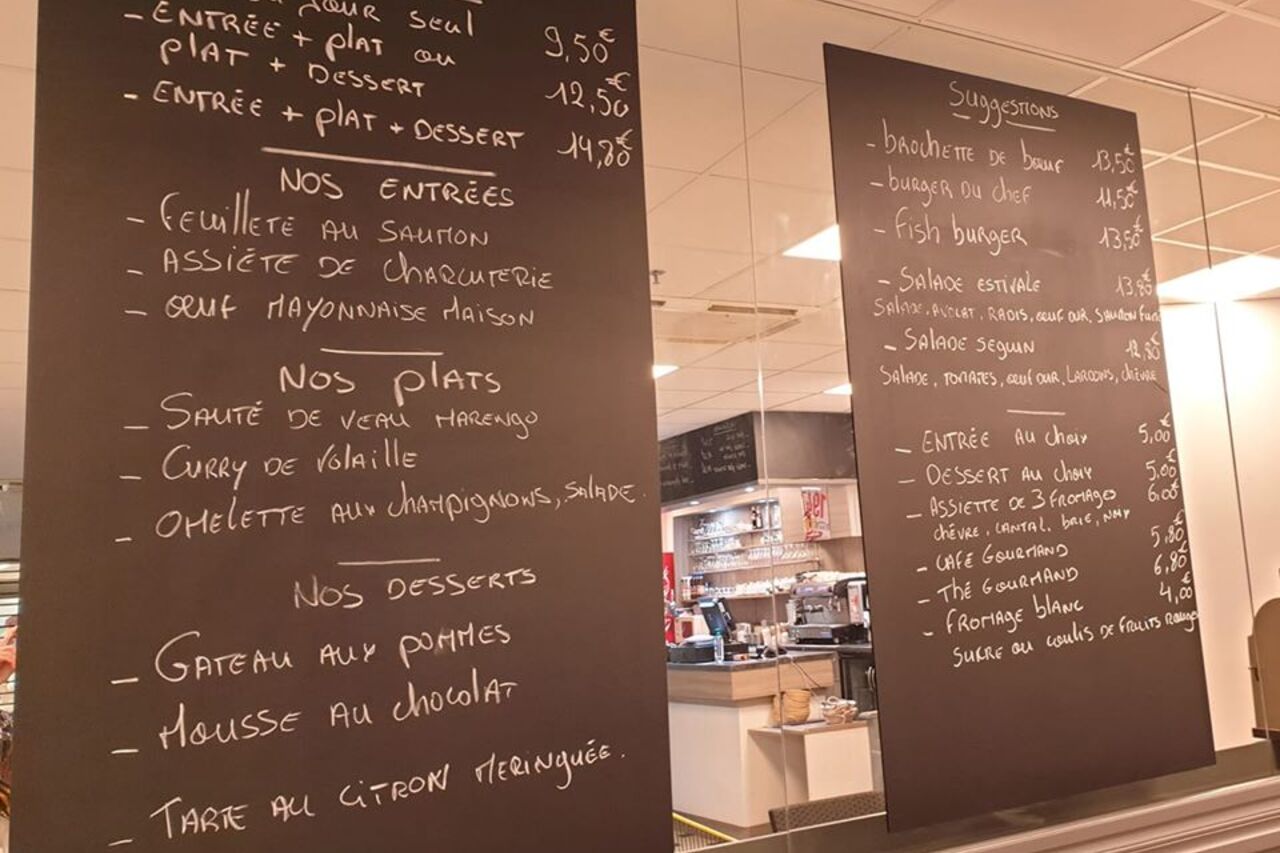 JOUR SEUL 9,50€
- ENTRÉE + PLAT OU
PLAT + DESSERT 12,50€
- ENTRÉE + PLAT + DESSERT 14,80€
NOS ENTRÉES
- FEUILLETÉ AU SAUMON
- ASSIÈTE DE CHARCUTERIE
- ŒUF MAYONNAISE MAISON
NOS PLATS
- SAUTÉ DE VEAU MARENGO
- CURRY DE VOLAILLE
- OMELETTE AUX CHAMPIGNONS, SALADE.
NOS DESSERTS
- GATEAU AUX POMMES
- MOUSSE AU CHOCOLAT
- TARTE AU CITRON MERINGUÉE.
Suggestions
- BROCHETTE DE BŒUF 13,50€
- BURGER DU CHEF 11,50€
- FISH BURGER 13,50€
- SALADE ESTIVALE 13,80€
SALADE, AVOCAT, RADIS, ŒUF DUR, SAUMON FUMÉ
- SALADE SEGUIN 12,80€
SALADE, TOMATES, ŒUF DUR, LARDONS, CHÈVRE
- ENTRÉE AU CHOIX 5,00€
- DESSERT AU CHOIX 5,00€
- ASSIETTE DE 3 FROMAGES 6,00€
CHÈVRE, CANTAL, BRIE, NOIX
- CAFÉ GOURMAND 5,80€
- THÉ GOURMAND 6,80€
- FROMAGE BLANC 4,00€
SUCRE OU COULIS DE FRUITS ROUGES